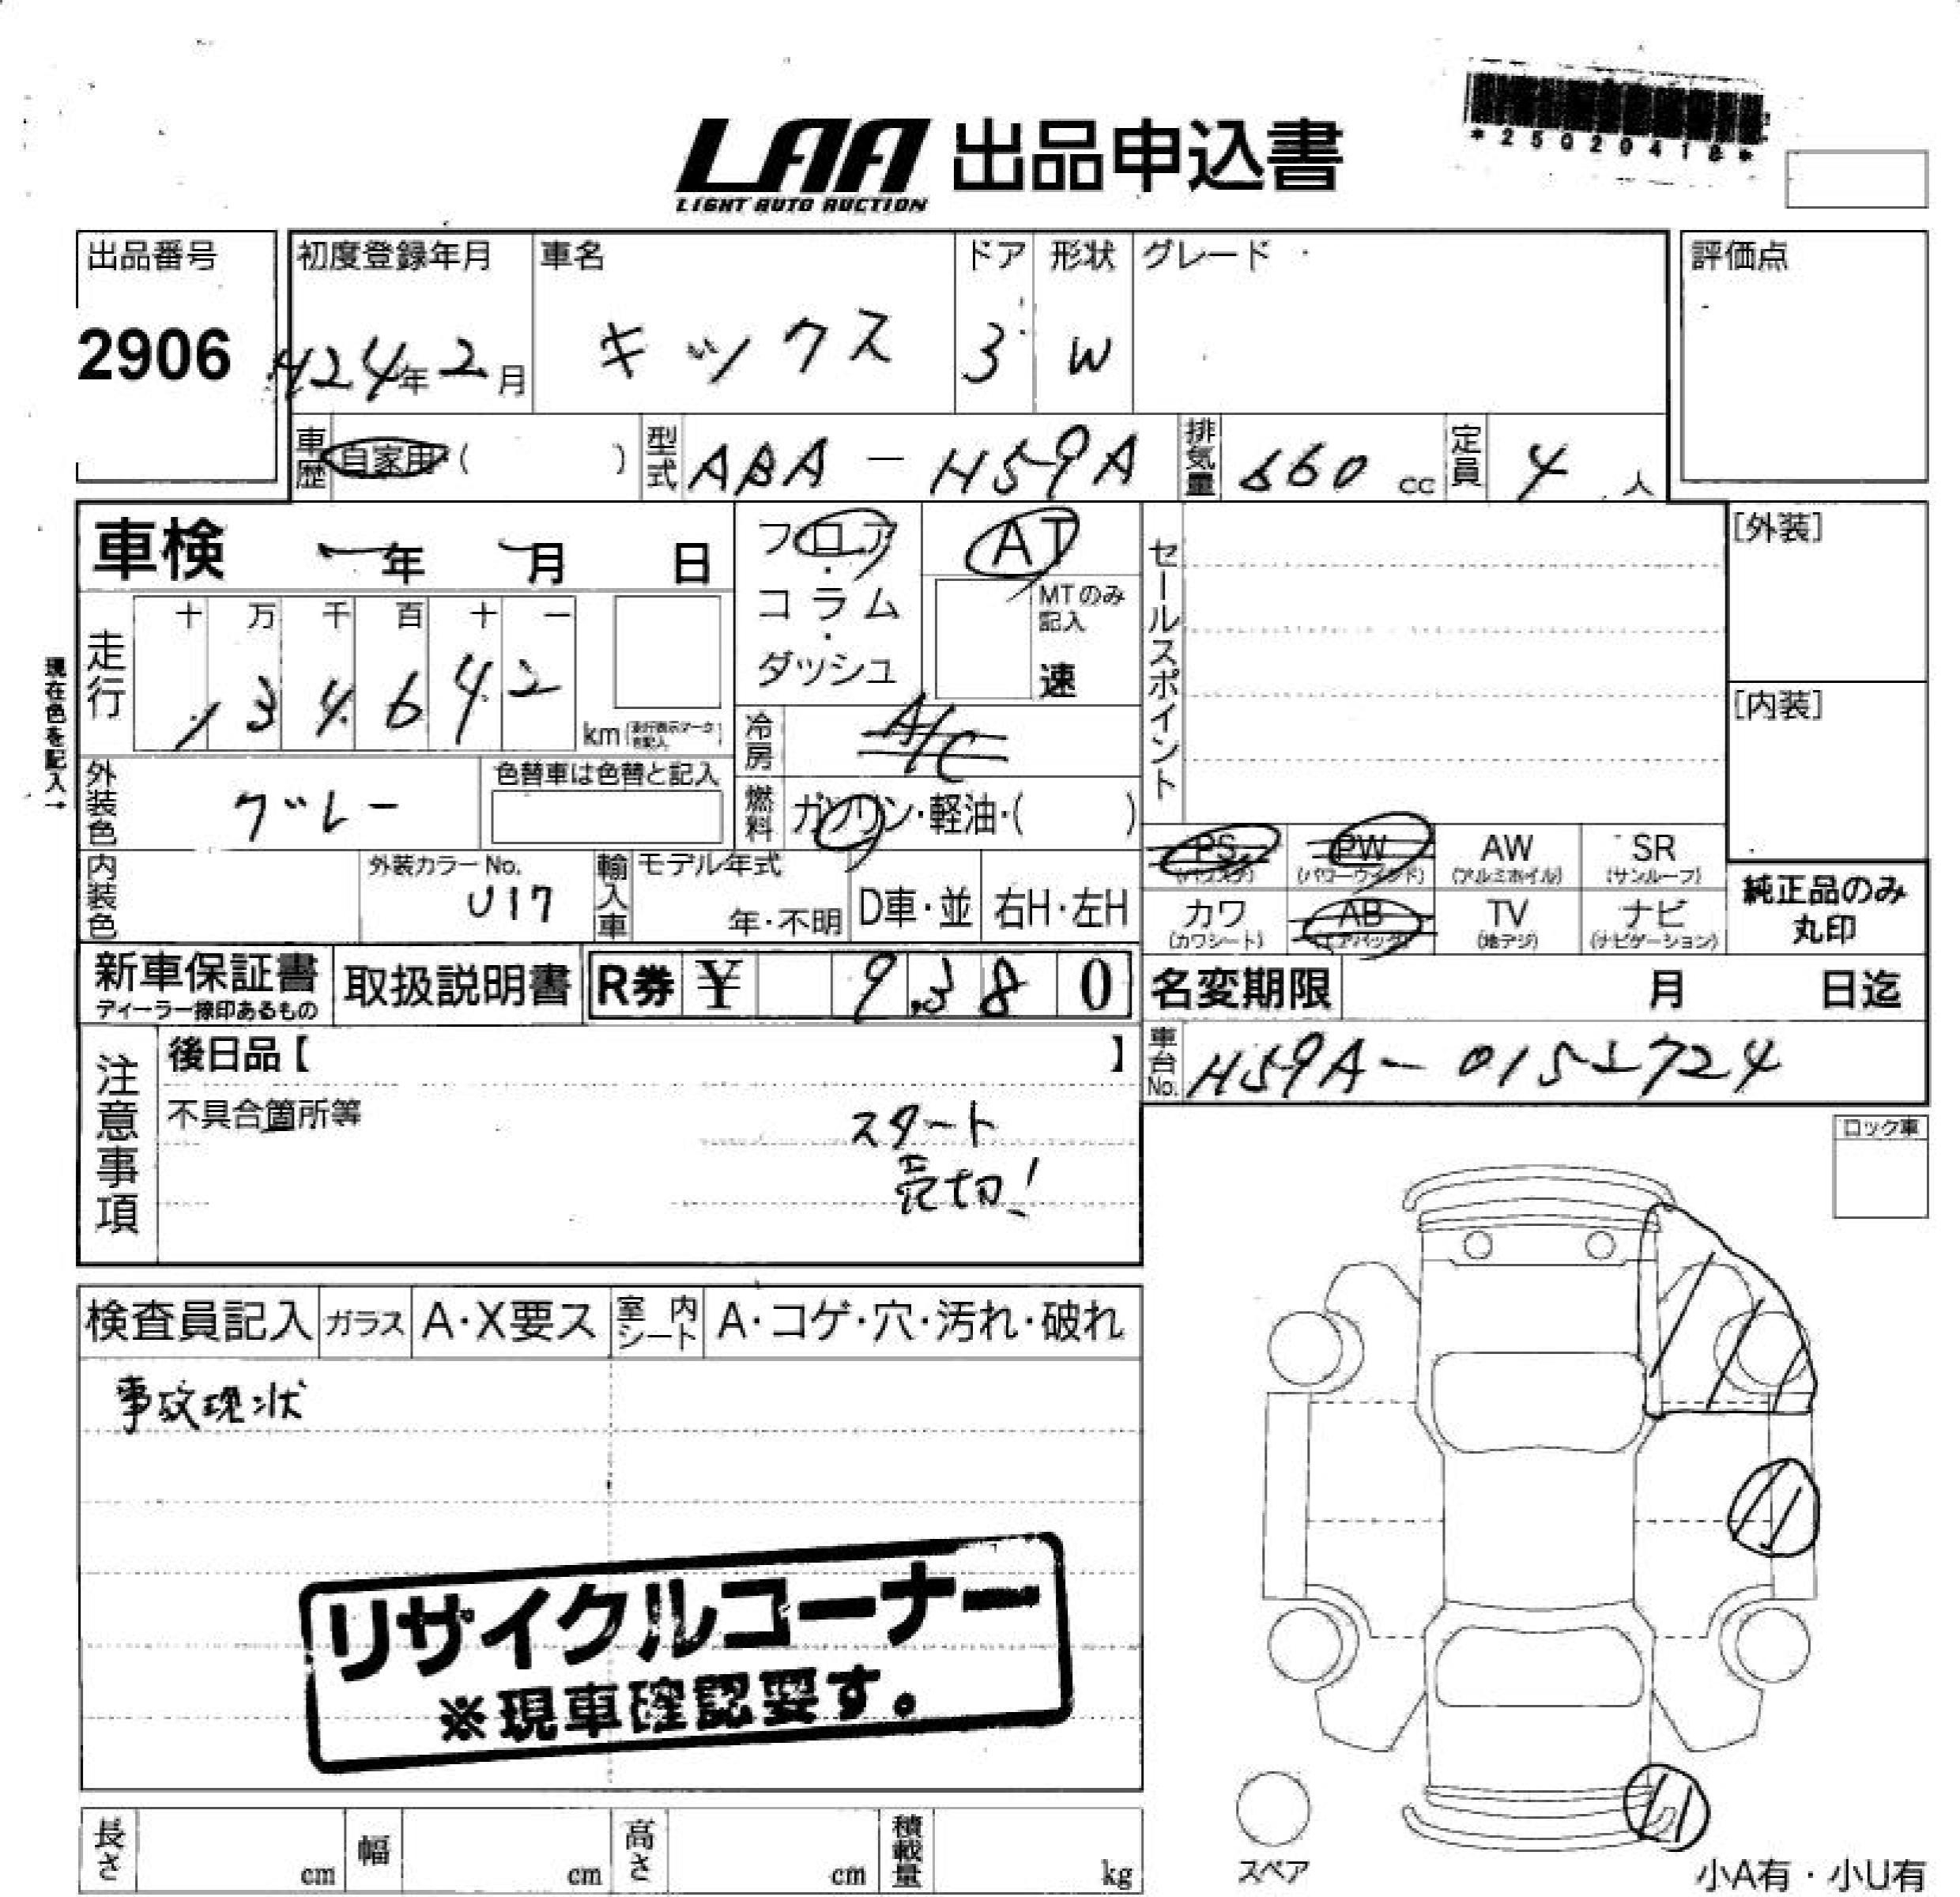 *25020418*
LAA 出品申込書
LIGHT AUTO AUCTION
出品番号 初度登録年月 車名 ドア 形状 グレード 評価点
2906 H24年2月 キックス 3 W
車歴 自家用・( ) 型式 ABA-H59A 排気量 660 cc 定員 4 人
車検 年 月 日
フロア・コラム・ダッシュ
AT
MTのみ記入
速
セールスポイント
[外装]
[内装]
現在色を記入→
走行 十 万 千 百 十 一
1 3 4 6 4 2 km
冷房 A/C
外装色 グレー 色替車は色替と記入
燃料 ガソリン・軽油・( )
内装色 外装カラーNo. U17
輸入車 モデル年式 年・不明 D車・並 右H・左H
PS (パワステ) PW (パワーウインド) AW (アルミホイル) SR (サンルーフ)
カワ (カワシート) AB (エアバッグ) TV (地デジ) ナビ (ナビゲーション)
純正品のみ丸印
新車保証書 ディーラー捺印あるもの
取扱説明書 R券 ¥ 9,380
名変期限 月 日迄
車台No. H59A-0152724
注意事項
後日品【 】
不具合箇所等
スタート
売切!
ロック車
検査員記入 ガラス A・X要ス 室内シート A・コゲ・穴・汚れ・破れ
事故現状
リサイクルコーナー
※現車確認要す。
長さ cm 幅 cm 高さ cm 積載量 kg
スペア
小A有・小U有